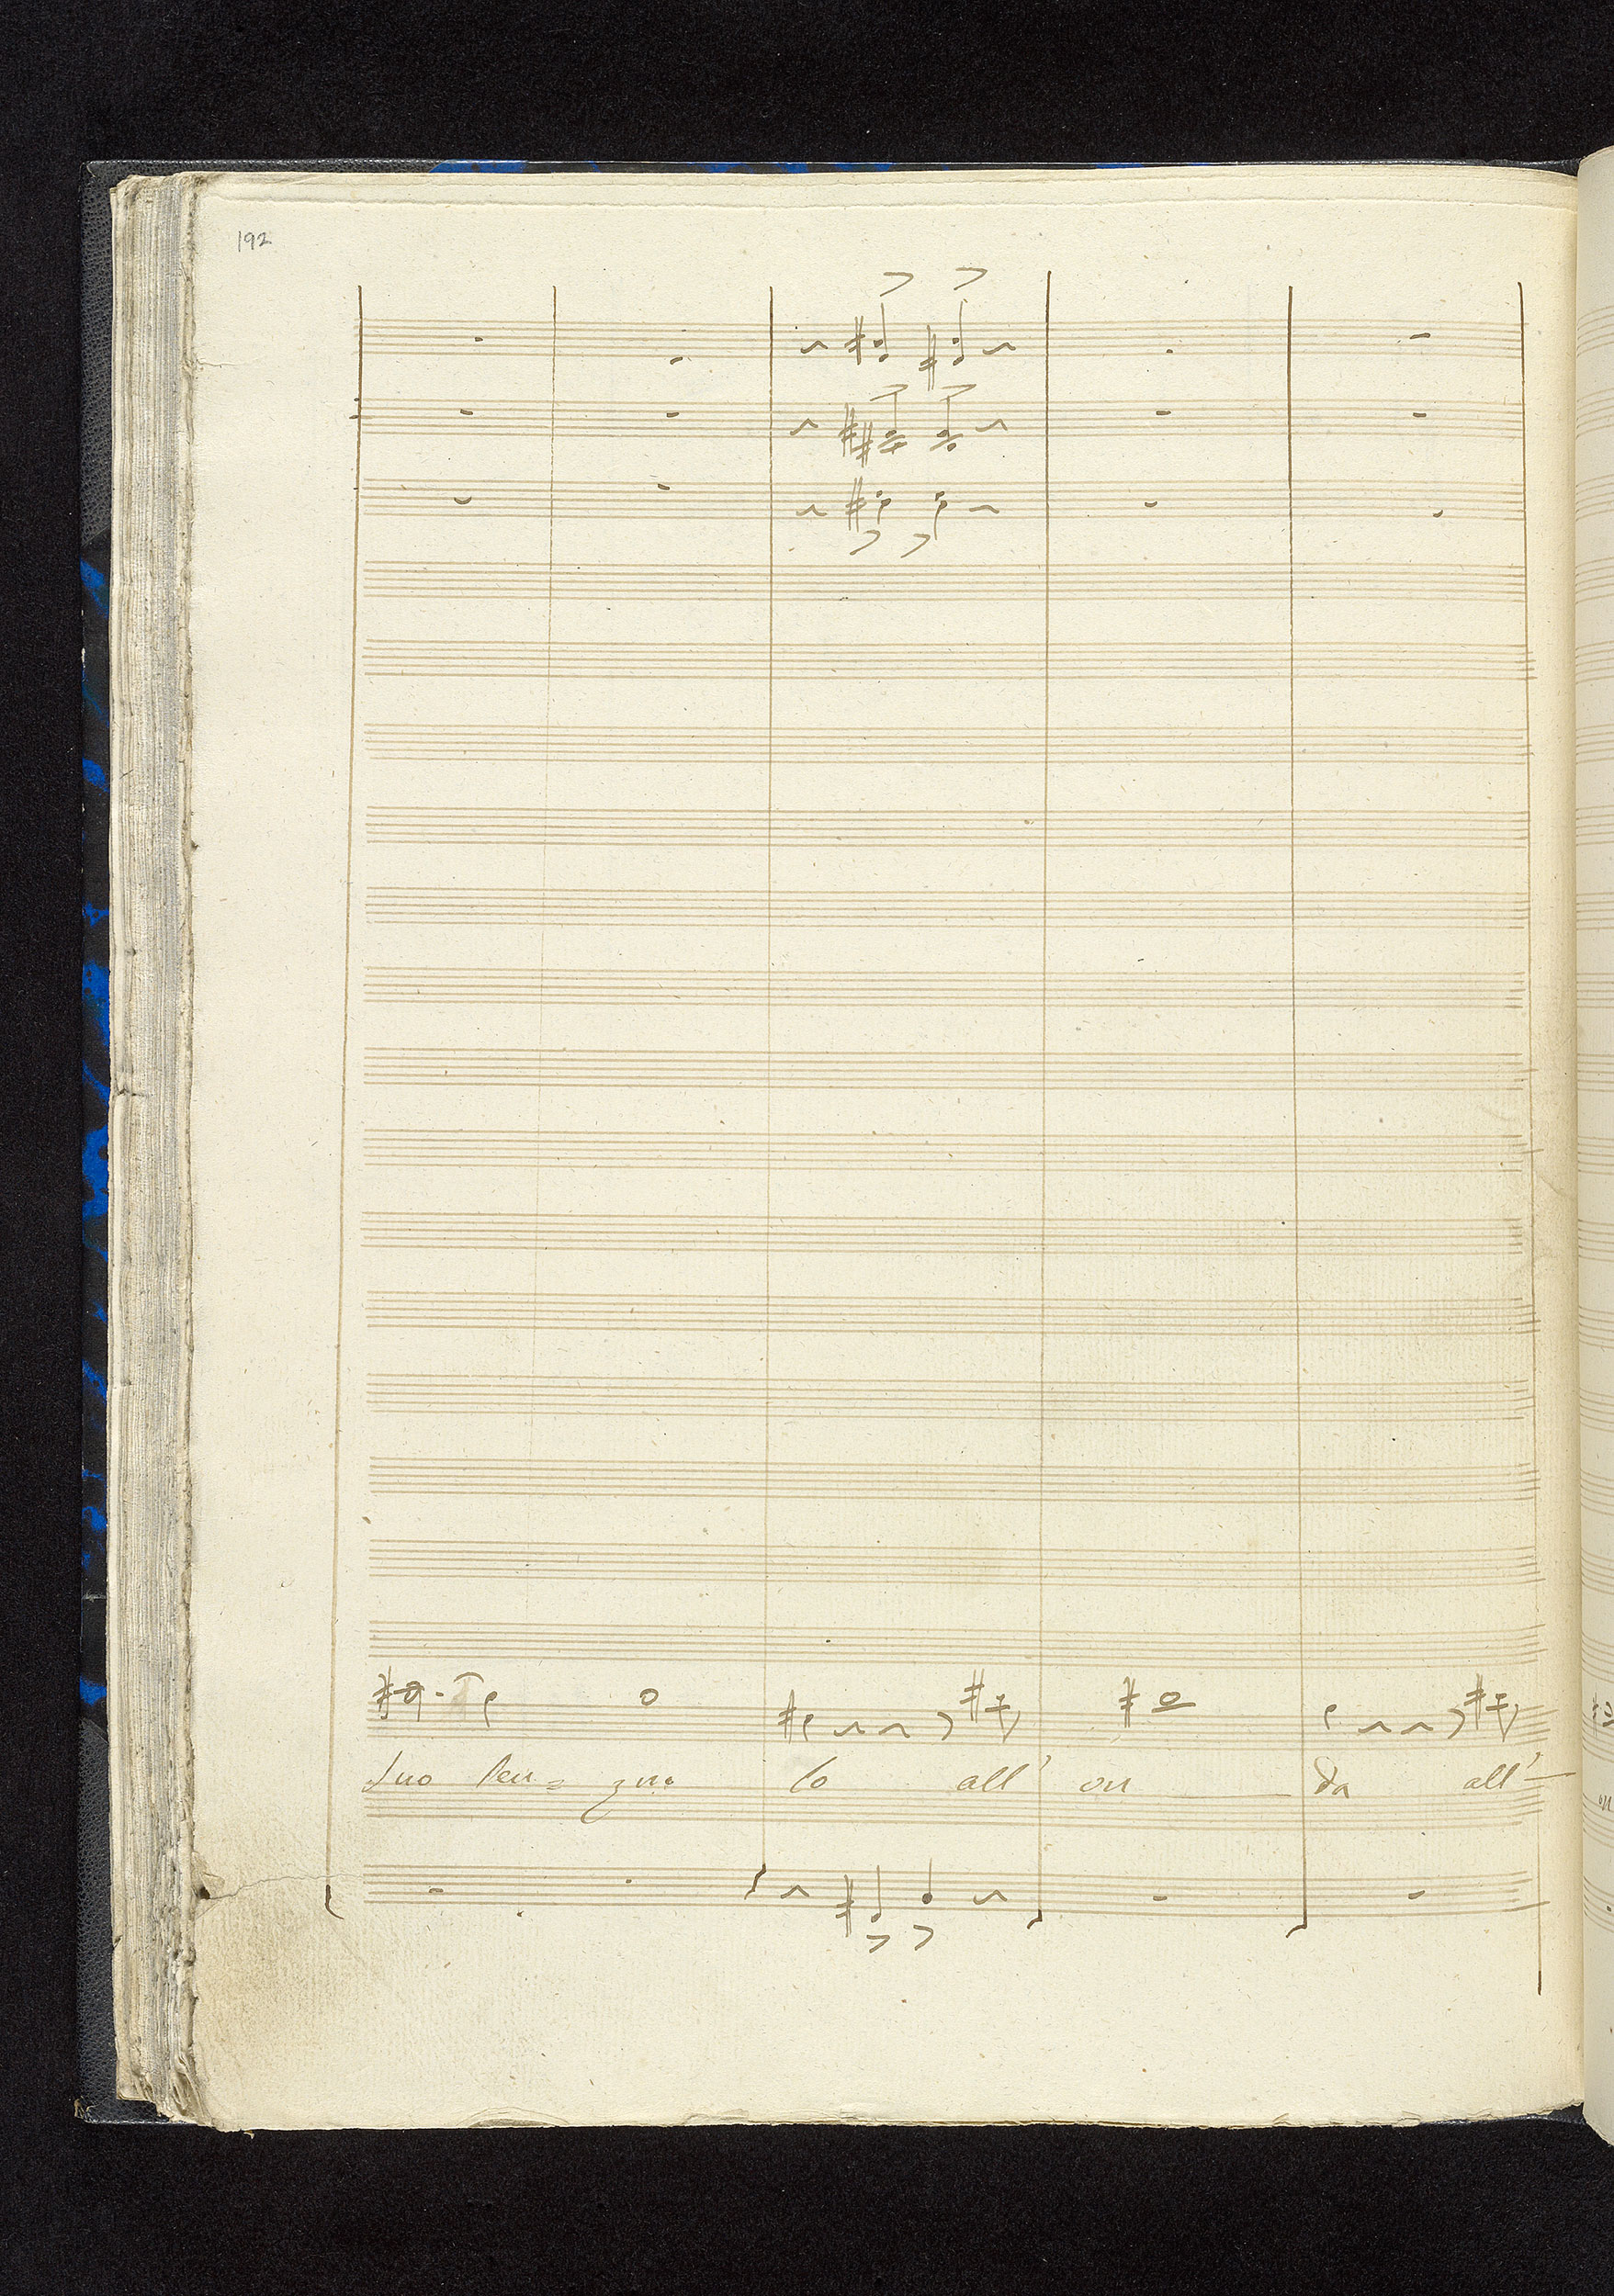 192
suo len= zuo lo all' on da all'